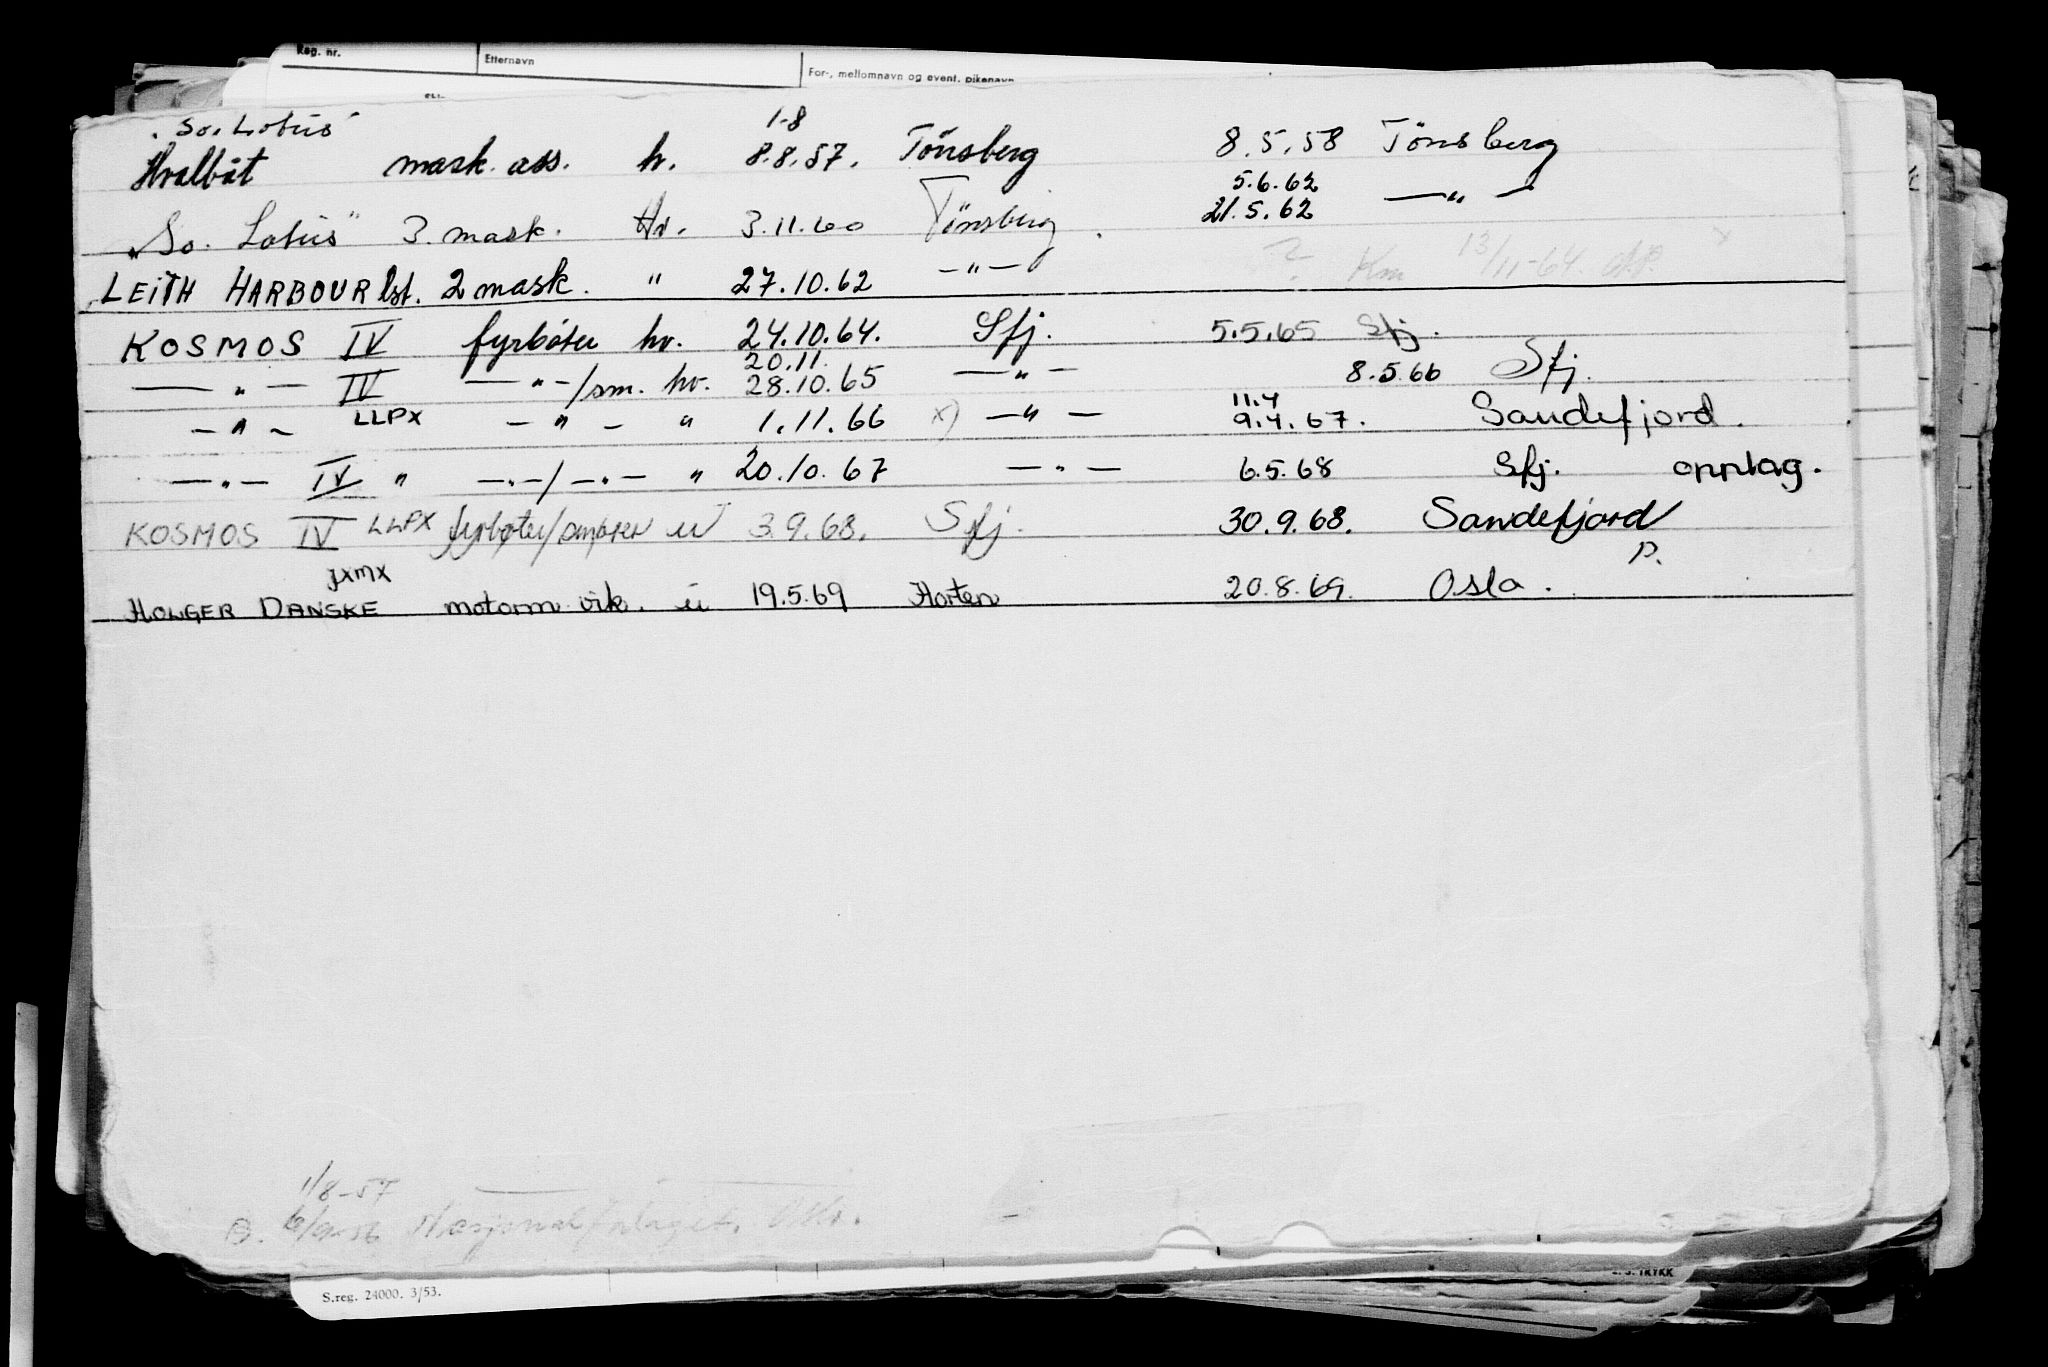 Reg. nr. Etternavn For-, mellomnavn og event. pikenavn
"So. Lotus" 1-8
Hvalbåt mask. ass. h. 8.8.57. Tönsberg 8.5.58 Tönsberg
5.6.62
"So. Lotus" 3. mask. Hv. 3.11.60 Tönsberg. 21.5.62 —"—
LEITH HARBOUR lst. 2 mask. " 27.10.62 —"— ? Km 13/11-64. x
KOSMOS IV fyrbøter hv. 24.10.64. Sfj. 5.5.65 Sfj.
20.11.
—"— IV —"—/sm. hv. 28.10.65 —"— 8.5.66 Sfj.
11.4
—"— LLPX —"— " 1.11.66 x) —"— 9.4.67. Sandefjord.
—"— IV " —"—/—"— " 20.10.67 —"— 6.5.68 Sfj. opplag.
KOSMOS IV LLPX fyrbøter/smører u 3.9.68. Sfj. 30.9.68. Sandefjord
P.
JXMX
HOLGER DANSKE motorm vik. u 19.5.69 Horten 20.8.69. Oslo.
1/8-57
6/9-56 Nasjonalforlaget.
S.reg. 24000. 3/53.